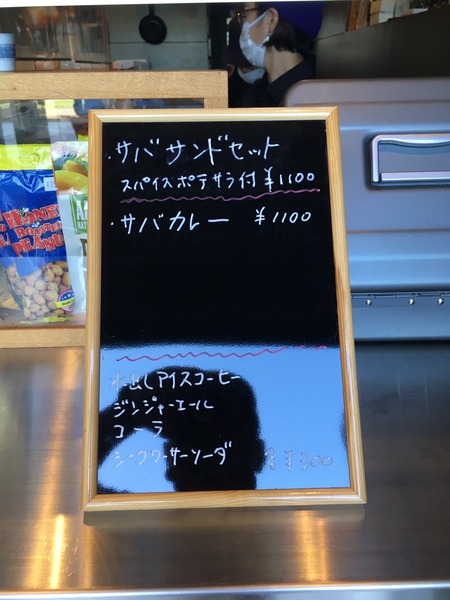 ・サバサンドセット
スパイスポテサラ付 ¥1100
・サバカレー ¥1100
水出しアイスコーヒー
ジンジャーエール
コーラ
シークワーサーソーダ 各¥300
HONEY
ROASTED
PEANUTS